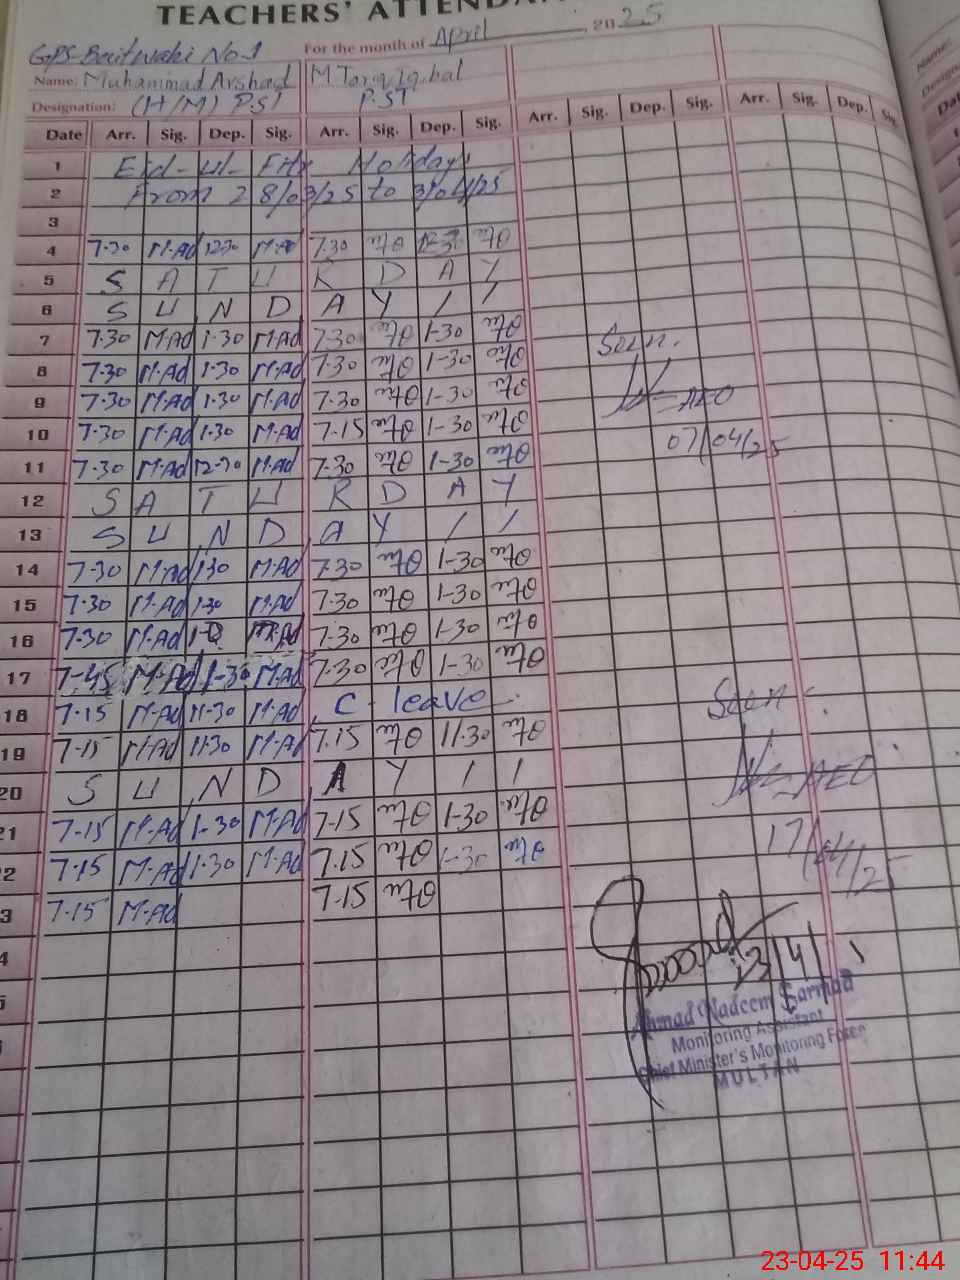 TEACHERS' ATTENDAN
GPS-Baitwaki No.1 For the month of April 2025
Name: Muhammad Arshad M.Tariq Iqbal
Designation: (H/M) P.ST P.ST
Date Arr. Sig. Dep. Sig. Arr. Sig. Dep. Sig. Arr. Sig. Dep. Sig. Arr. Sig. Dep. Sig.
1 Eid-Ul-Fitr Holidays
2 From 28/03/25 to 3/04/25
3
4 7.30 M.Ad 12-30 M.Ad 7.30 12-30
5 S A T U R D A Y
6 S U N D A Y / /
7 7.30 M.Ad 1-30 M.Ad 7.30 1-30
8 7.30 M.Ad 1.30 M.Ad 7.30 1-30
Seen.
9 7.30 M.Ad 1.30 M.Ad 7.30 1-30
AEO
10 7.30 M.Ad 1.30 M.Ad 7-15 1-30
07/04/25
11 7.30 M.Ad 12-30 M.Ad 7.30 1-30
12 S A T U R D A Y
13 S U N D A Y / /
14 7-30 M.Ad 1.30 M.Ad 7.30 1-30
15 7.30 M.Ad 1.30 M.Ad 7.30 1-30
16 7-30 M.Ad M.Ad 7.30 1-30
17 7-45 M.Ad 1-30 M.Ad 7.30 1-30
18 7.15 M.Ad 11-30 M.Ad C. leave
Seen.
19 7-15 M.Ad 11.30 M.Ad 7.15 11.30
20 S U N D A Y / /
AEO
21 7-15 M.Ad 1-30 M.Ad 7-15 1-30
17/04/25
2 7.15 M.Ad 1.30 M.Ad 7.15 1-30
3 7.15 M.Ad 7-15
4
23/4/
Ahmad Nadeem Sarmad
Monitoring Assistant
Chief Minister's Monitoring Force
MULTAN
Name:
23-04-25 11:44